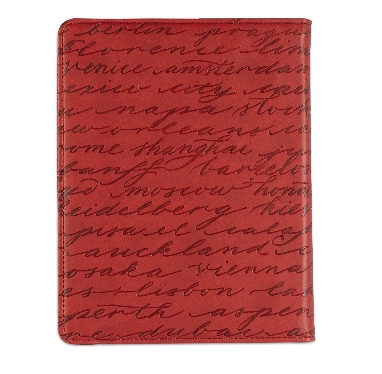 berlin prague
florence lim
venice amsterdam
exico city
napa stock
ew orleans
ome shanghai
banff barcelo
moscow hono
eidelberg kie
pisa el calaf
auckland a
osaka vienna
es - lisbon
perth aspen
me dubai a